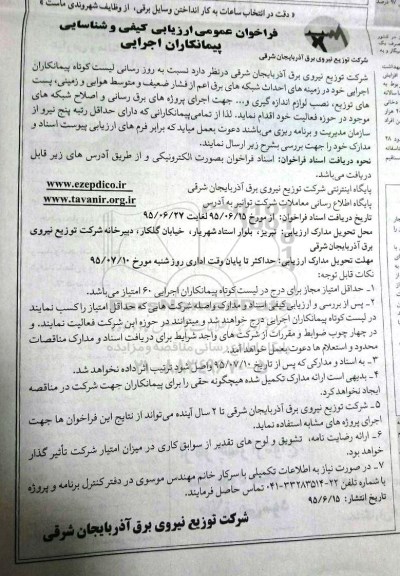 « دقت در انتخاب ساعات به کار انداختن وسایل برقی، از وظایف شهروندی ماست »
فراخوان عمومی ارزیابی کیفی و شناسایی
پیمانکاران اجرایی
شرکت توزیع نیروی برق آذربایجان شرقی
شرکت توزیع نیروی برق آذربایجان شرقی درنظر دارد نسبت به روز رسانی لیست کوتاه پیمانکاران
اجرایی خود در زمینه های احداث شبکه های برق اعم از فشار ضعیف و متوسط هوایی و زمینی، پست
های توزیع، نصب لوازم اندازه گیری و... جهت اجرای پروژه های برق رسانی و اصلاح شبکه های
موجود در حوزه فعالیت خود اقدام نماید. لذا از تمامی پیمانکارانی که دارای حداقل رتبه پنج نیرو از
سازمان مدیریت و برنامه ریزی می‌باشند دعوت بعمل میاید که برابر فرم های ارزیابی پیوست اسناد و
مدارک خود را جهت بررسی بشرح زیر ارسال نمایند.
نحوه دریافت اسناد فراخوان: اسناد فراخوان بصورت الکترونیکی و از طریق آدرس های زیر قابل
دریافت می‌باشد.
پایگاه اینترنتی شرکت توزیع نیروی برق آذربایجان شرقی www.ezepdico.ir
پایگاه اطلاع رسانی معاملات شرکت توانیر به آدرس www.tavanir.org.ir
تاریخ دریافت اسناد فراخوان: از مورخ ۹۵/۰۶/۱۵ لغایت ۹۵/۰۶/۲۷
محل تحویل مدارک ارزیابی: تبریز، بلوار استاد شهریار، خیابان گلکار، دبیرخانه شرکت توزیع نیروی
برق آذربایجان شرقی
مهلت تحویل مدارک ارزیابی: حداکثر تا پایان وقت اداری روز شنبه مورخ ۹۵/۰۷/۱۰
نکات قابل توجه:
۱- حداقل امتیاز مجاز برای درج در لیست کوتاه پیمانکاران اجرایی ۶۰ امتیاز می‌باشد.
۲- پس از بررسی و ارزیابی کیفی اسناد و مدارک واصله شرکت هایی که حداقل امتیاز را کسب نمایند
در لیست کوتاه پیمانکاران اجرایی درج خواهند شد و میتوانند در حوزه این شرکت فعالیت نمایند. و
در چهار چوب ضوابط و مقررات از شرکت های واجد شرایط برای دریافت اسناد و مدارک مناقصات
محدود و استعلام ها دعوت بعمل خواهد آمد.
۳- به اسناد و مدارکی که پس از تاریخ ۹۵/۰۷/۱۰ واصل شود ترتیب اثر داده نخواهد شد.
۴- بدیهی است ارائه مدارک تکمیل شده هیچگونه حقی را برای پیمانکاران جهت شرکت در مناقصه
ایجاد نخواهد کرد.
۵- شرکت توزیع نیروی برق آذربایجان شرقی تا ۲ سال آینده می‌تواند از نتایج این فراخوان ها جهت
اجرای پروژه های مشابه استفاده نماید.
۶- ارائه رضایت نامه، تشویق و لوح های تقدیر از سوابق کاری در میزان امتیاز شرکت تأثیر گذار
خواهد بود.
۷- در صورت نیاز به اطلاعات تکمیلی با سرکار خانم مهندس موسوی در دفتر کنترل برنامه و پروژه
با شماره تلفن ۲۲-۳۳۲۸۳۵۱۴-۰۴۱ تماس حاصل فرمایند.
تاریخ انتشار: ۹۵/۶/۱۵
شرکت توزیع نیروی برق آذربایجان شرقی